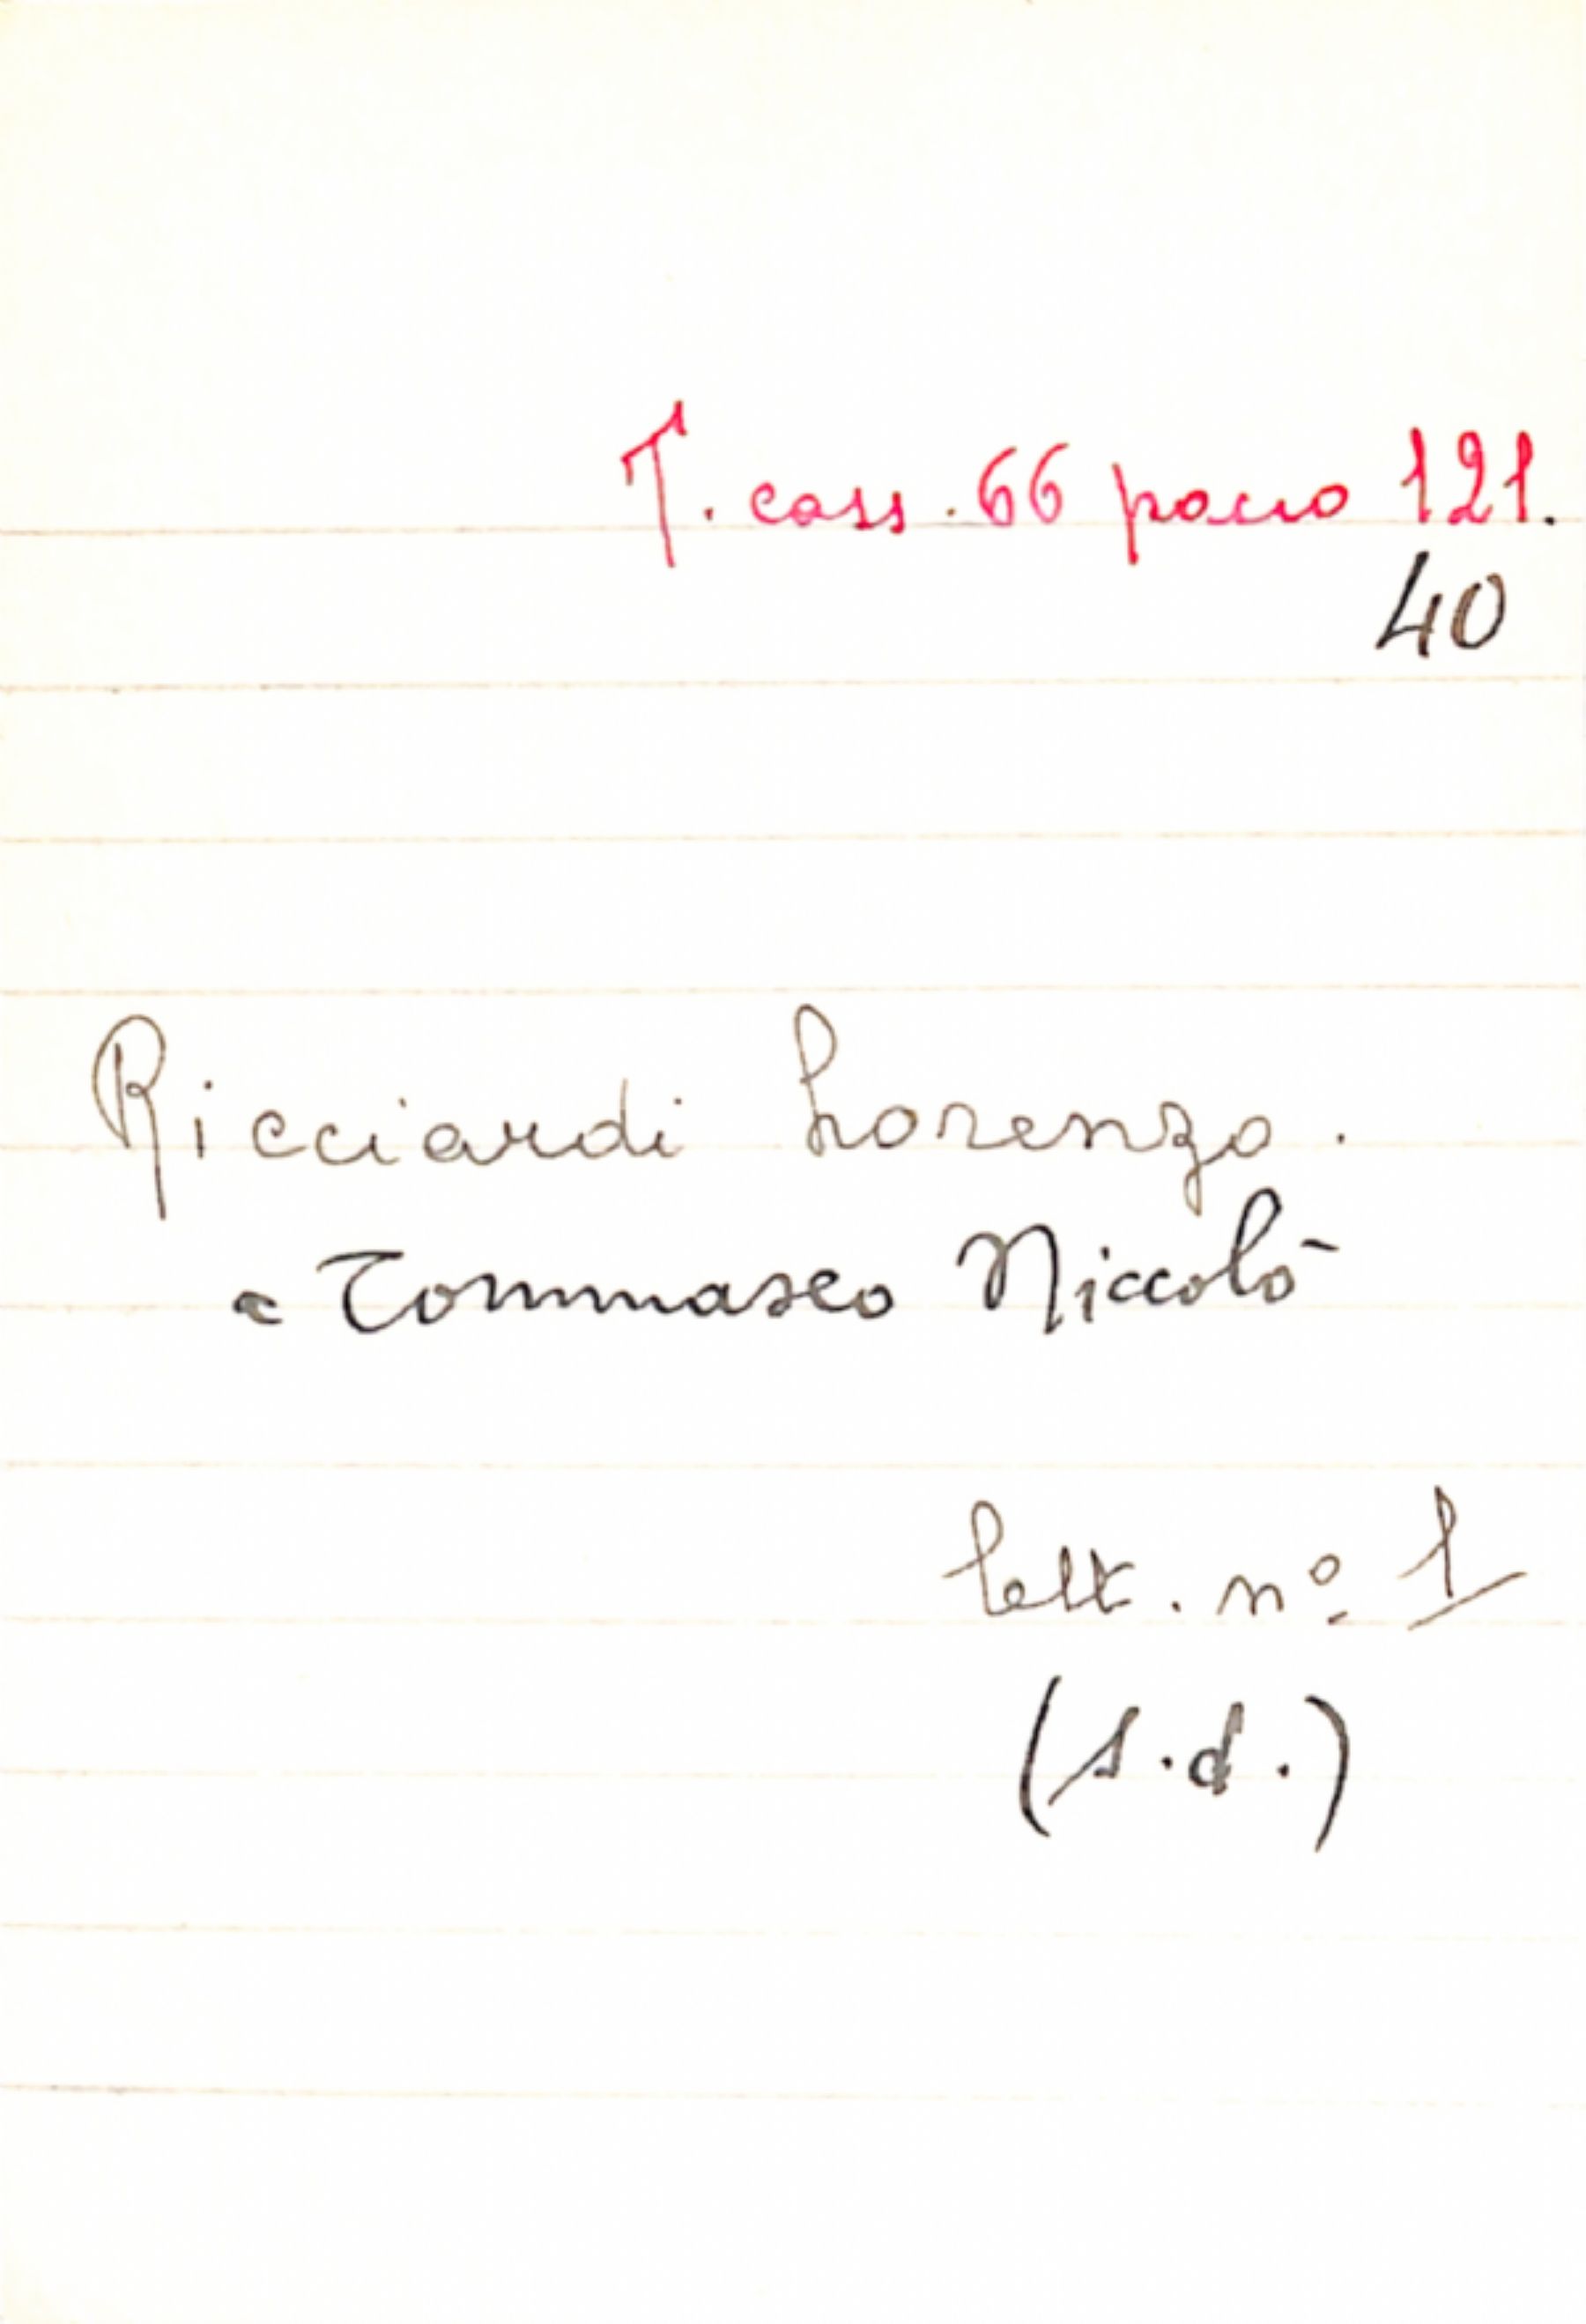 T. cass. 66 pacco 121.
40
Ricciardi Lorenzo.
a Tommaseo Niccolò
lett. nº 1
(s.d.)